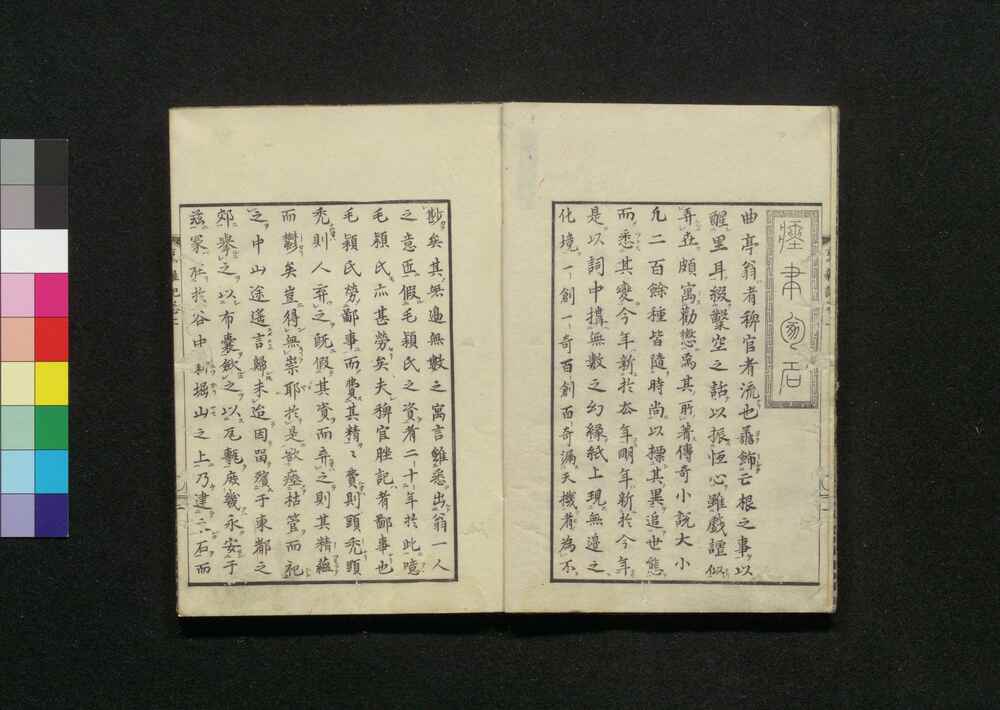 曲亭翁者稗官者流也尋飾亡根之事以
醒里耳綴鑿空之話以振恒心雖戯謔似
弄世頗寓勸懲焉其所著傳奇小說大小
凡二百餘種皆隨時尚以標其異追世態
而悉其變今年新於去年明年新於今年
是以詞中構無數之幻緣紙上現無邊之
化境一創一奇百創百奇漏天機者為不
尠矣其無邊無數之寓言雖悉出翁一人
之意匠假毛穎氏之資者二十年於此噫
毛穎氏亦甚勞矣夫稗官胜記者鄙事也
毛穎氏勞鄙事而費其精〻費則頭禿頭
禿則人弃之既假其資而弃之則其精蘊
而鬱矣豈得無祟耶於是欲瘞枯管而祀
之中山途遙言歸未迨因留殯于東都之
郊擧之以布囊斂之以瓦甎庶幾永安于
茲冢在於谷中掘山之上乃建二石而